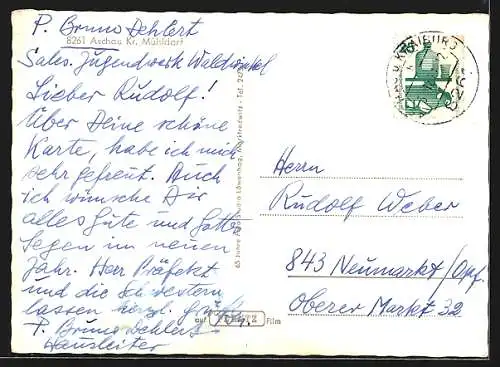 P. Bruno Dehlert
8261 Aschau Kr. Mühldorf
Sales. Jugendwerk Waldwinkel
Lieber Rudolf!
Über Deine schöne
Karte, habe ich mich
sehr gefreut. Auch
ich wünsche Dir
alles Gute und Gottes
Segen im neuen
Jahr. Herr Präfekt
und die Schwestern
lassen herzl. grüßen
P. Bruno Dehlert
Hausleiter
auf Film
Herrn
Rudolf Weber
843 Neumarkt/Opf.
Oberer Markt 32